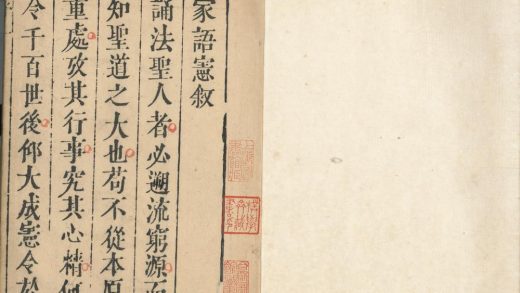 家語憲敘
誦法聖人者必遡流窮源而
知聖道之大也苟不從本原
重處攷其行事究其心精何
令千百世後仰大成憲令於